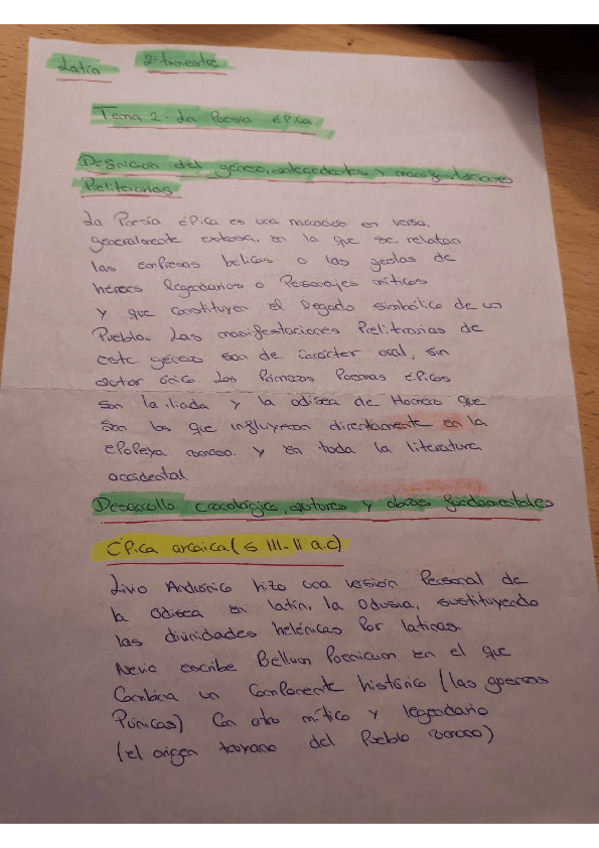 Latín 2º trimestre
Tema 2. La Poesía épica
Definición del género, antecedentes y manifestaciones
Preliterarias
La Poesía épica es una narración en verso,
generalmente extensa, en la que se relatan
las empresas bélicas o las gestas de
héroes legendarios o Personajes míticos
y que constituyen el legado simbólico de un
Pueblo. Las manifestaciones Preliterarias de
este género son de carácter oral, sin
autor único. Los Primeros Poemas épicos
son la iliada y la odisea de Homero que
son los que influyeron directamente en la
epopeya romana y en toda la literatura
occidental.
Desarrollo cronológico, autores y obras fundamentales
Épica arcaica (s III-II a.c)
Livio Andrónico hizo una versión Personal de
la Odisea en latín, la Odusia, sustituyendo
las divinidades helénicas Por latinas.
Nevio escribe Bellum Poenicum en el que
Combina un Componente histórico (las guerras
Púnicas) Con otro mítico y legendario
(el origen troyano del Pueblo romano)